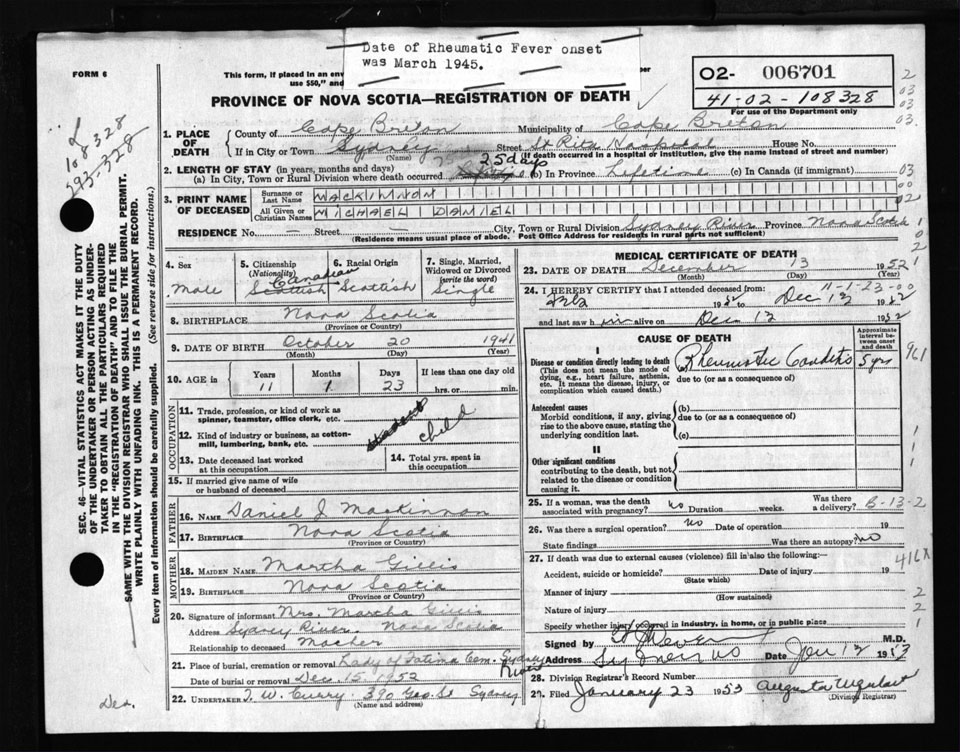 Date of Rheumatic Fever onset
was March 1945.
FORM 6
This form, if placed in an env
use $50," and
02- 006701
41-02-108328
For use of the Department only
PROVINCE OF NOVA SCOTIA—REGISTRATION OF DEATH
108328
293-328
SEC. 46 VITAL STATISTICS ACT MAKES IT THE DUTY
OF THE UNDERTAKER OR PERSON ACTING AS UNDER-
TAKER TO OBTAIN ALL THE PARTICULARS REQUIRED
IN THE "REGISTRATION OF DEATH" AND TO FILE THE
SAME WITH THE DIVISION REGISTRAR WHO SHALL ISSUE THE BURIAL PERMIT.
WRITE PLAINLY WITH UNFADING INK. THIS IS A PERMANENT RECORD.
Every item of information should be carefully supplied. (See reverse side for instructions.)
1. PLACE OF DEATH
County of Cape Breton Municipality of Cape Breton
If in City or Town Sydney Street St Rita Hospital House No.
(Name) (If death occurred in a hospital or institution, give the name instead of street and number)
2. LENGTH OF STAY (in years, months and days) 25 days
(a) In City, Town or Rural Division where death occurred (b) In Province Lifetime (c) In Canada (if immigrant)
3. PRINT NAME OF DECEASED
Surname or Last Name MACKINNON
All Given or Christian Names MICHAEL DANIEL
RESIDENCE No. — Street — City, Town or Rural Division Sydney River Province Nova Scotia
(Residence means usual place of abode. Post Office Address for residents in rural parts not sufficient)
4. Sex
Male
5. Citizenship
(Nationality)
Canadian
Scottish
6. Racial Origin
Scottish
7. Single, Married,
Widowed or Divorced
(write the word)
Single
8. BIRTHPLACE Nova Scotia
(Province or Country)
9. DATE OF BIRTH October 20 1941
(Month) (Day) (Year)
10. AGE in
Years Months Days If less than one day old
11 1 23 hrs. or min.
OCCUPATION
11. Trade, profession, or kind of work as
spinner, teamster, office clerk, etc.
child
12. Kind of industry or business, as cotton-
mill, lumbering, bank, etc.
13. Date deceased last worked
at this occupation
14. Total yrs. spent in
this occupation
15. If married give name of wife
or husband of deceased
FATHER
16. NAME Daniel J MacKinnon
17. BIRTHPLACE Nova Scotia
(Province or Country)
MOTHER
18. MAIDEN NAME Martha Gillis
19. BIRTHPLACE Nova Scotia
(Province or Country)
20. Signature of informant Mrs. Martha Gillis
Address Sydney River. Nova Scotia
Relationship to deceased Mother
21. Place of burial, cremation or removal Lady of Fatima Cem. Sydney River
Date of burial or removal Dec. 15. 1952
22. UNDERTAKER T. W. Curry. 390 Geo. St Sydney
(Name and address)
MEDICAL CERTIFICATE OF DEATH
23. DATE OF DEATH December 13 1952
(Month) (Day) (Year)
11-1-23-00
24. I HEREBY CERTIFY that I attended deceased from:
1952 to Dec 12 1952
and last saw him alive on Dec 12 1952
CAUSE OF DEATH
Approximate
interval be-
tween onset
and death
I
Disease or condition directly leading to death
(This does not mean the mode of
dying, e.g., heart failure, asthenia,
etc. It means the disease, injury, or
complication which caused death.)
(a) Rheumatic Carditis 5 yrs
due to (or as a consequence of)
Antecedent causes
Morbid conditions, if any, giving
rise to the above cause, stating the
underlying condition last.
(b)
due to (or as a consequence of)
(c)
II
Other significant conditions
contributing to the death, but not
related to the disease or condition
causing it.
25. If a woman, was the death
associated with pregnancy? no Duration weeks. Was there a delivery? B-13-2
26. Was there a surgical operation? no Date of operation 19
State findings Was there an autopsy? no
27. If death was due to external causes (violence) fill in also the following:—
416X
Accident, suicide or homicide? Date of injury 19
(State which)
Manner of injury
(How sustained)
Nature of injury
Specify whether injury occurred in industry, in home, or in public place
Signed by M.D.
Address Sydney NS Date Jan 12 1953
28. Division Registrar's Record Number
29. Filed January 23 1953 Augusta Urquhart
(Division Registrar)